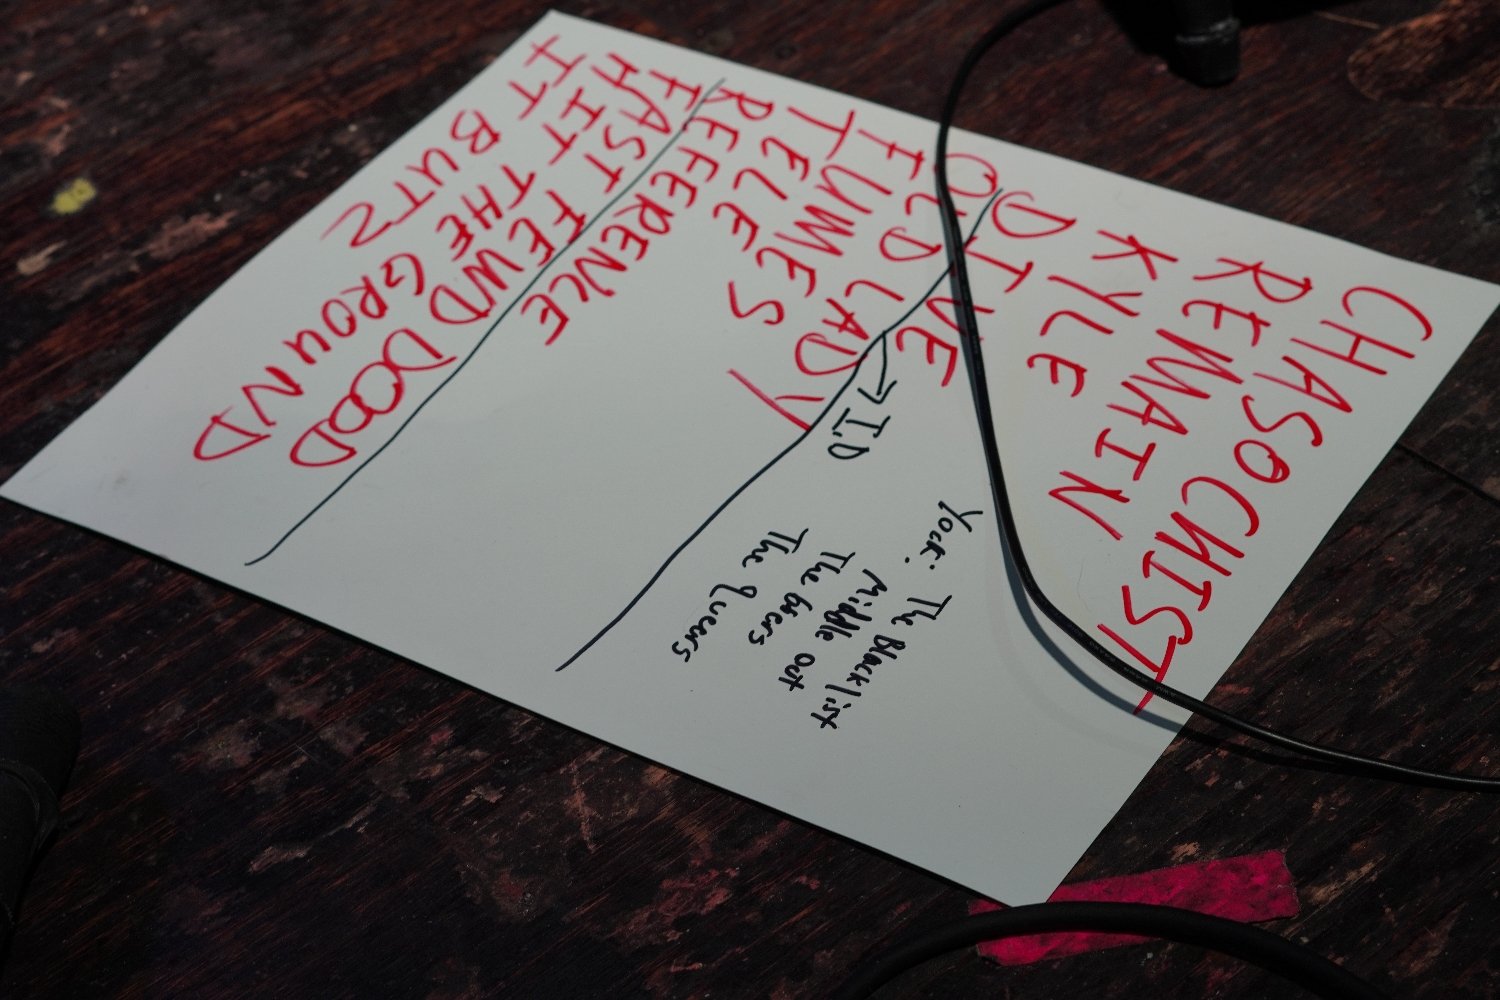 CHASOCHIST
REMAIN
KYLE
DIVE
OLD LADY
→ I.D
FUMES
TELE
REFERENCE
FAST FEWD DOOD
HIT THE GROUND
IT BUTZ
Yock: The Blacklist
Middle Out
The
The Queers